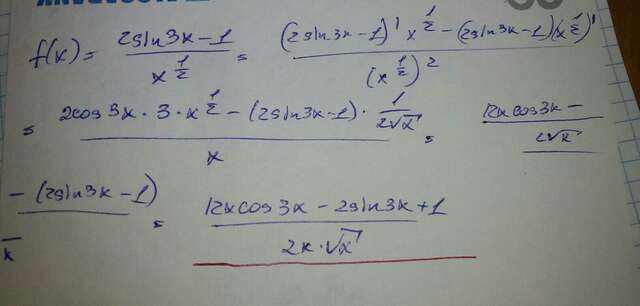 f(x) = (2sin3x-1)/(x^(1/2)) = ((2sin3x-1)' x^(1/2) - (2sin3x-1)(x^(1/2))')/((x^(1/2))^2)
= (2cos3x · 3 · x^(1/2) - (2sin3x-1) · 1/(2√x))/x = (12xcos3x -)/(2√x)
(- (2sin3x-1))/x = (12xcos3x - 2sin3x + 1)/(2x·√x)